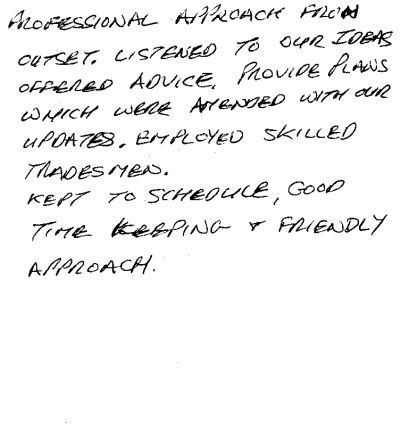 PROFESSIONAL APPROACH FROM
OUTSET. LISTENED TO OUR IDEAS
OFFERED ADVICE. PROVIDE PLANS
WHICH WERE AMENDED WITH OUR
UPDATES. EMPLOYED SKILLED
TRADESMEN.
KEPT TO SCHEDULE, GOOD
TIME KEEPING & FRIENDLY
APPROACH.